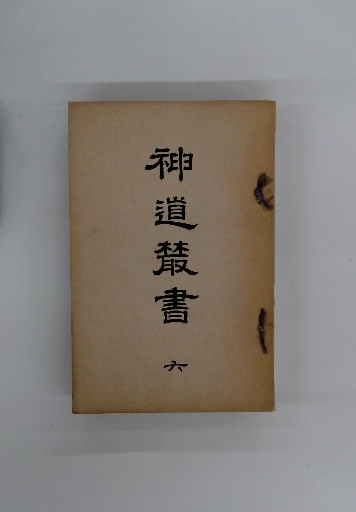 神道叢書
六